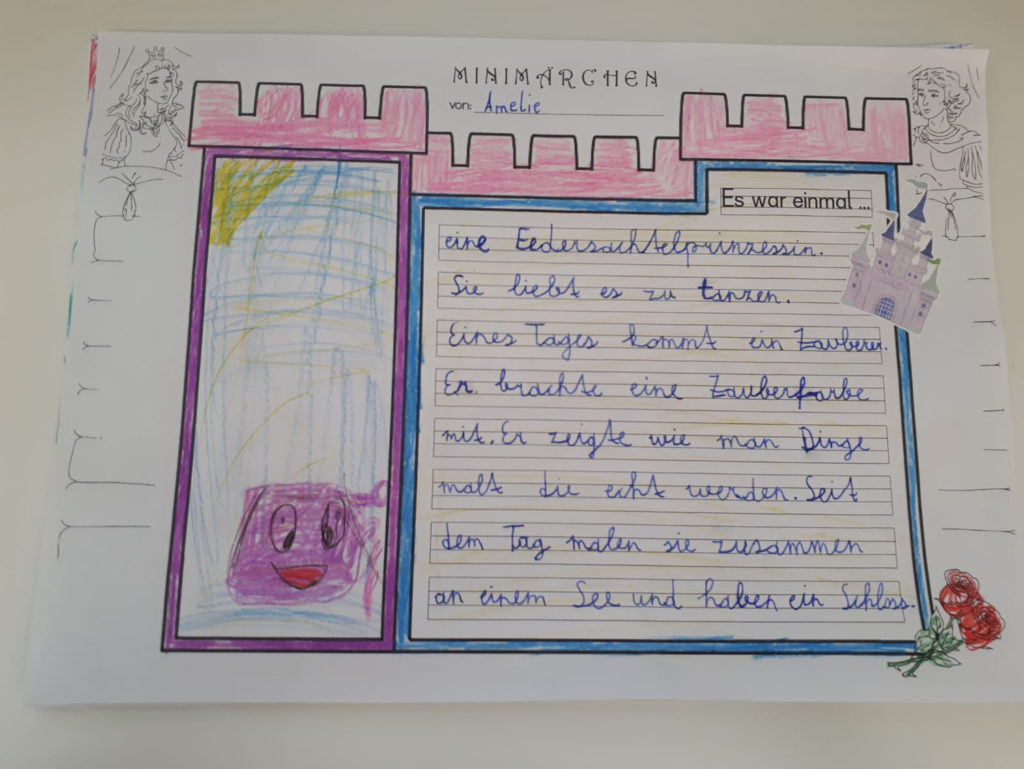 MINIMÄRCHEN
von: Amelie
Es war einmal ...
eine Eedersachtelprinzessin.
Sie liebt es zu tanzen.
Eines Tages kommt ein Zauberer.
Er brachte eine Zauberfarbe
mit. Er zeigte wie man Dinge
malt die echt werden. Seit
dem Tag malen sie zusammen
an einem See und haben ein Schloss.